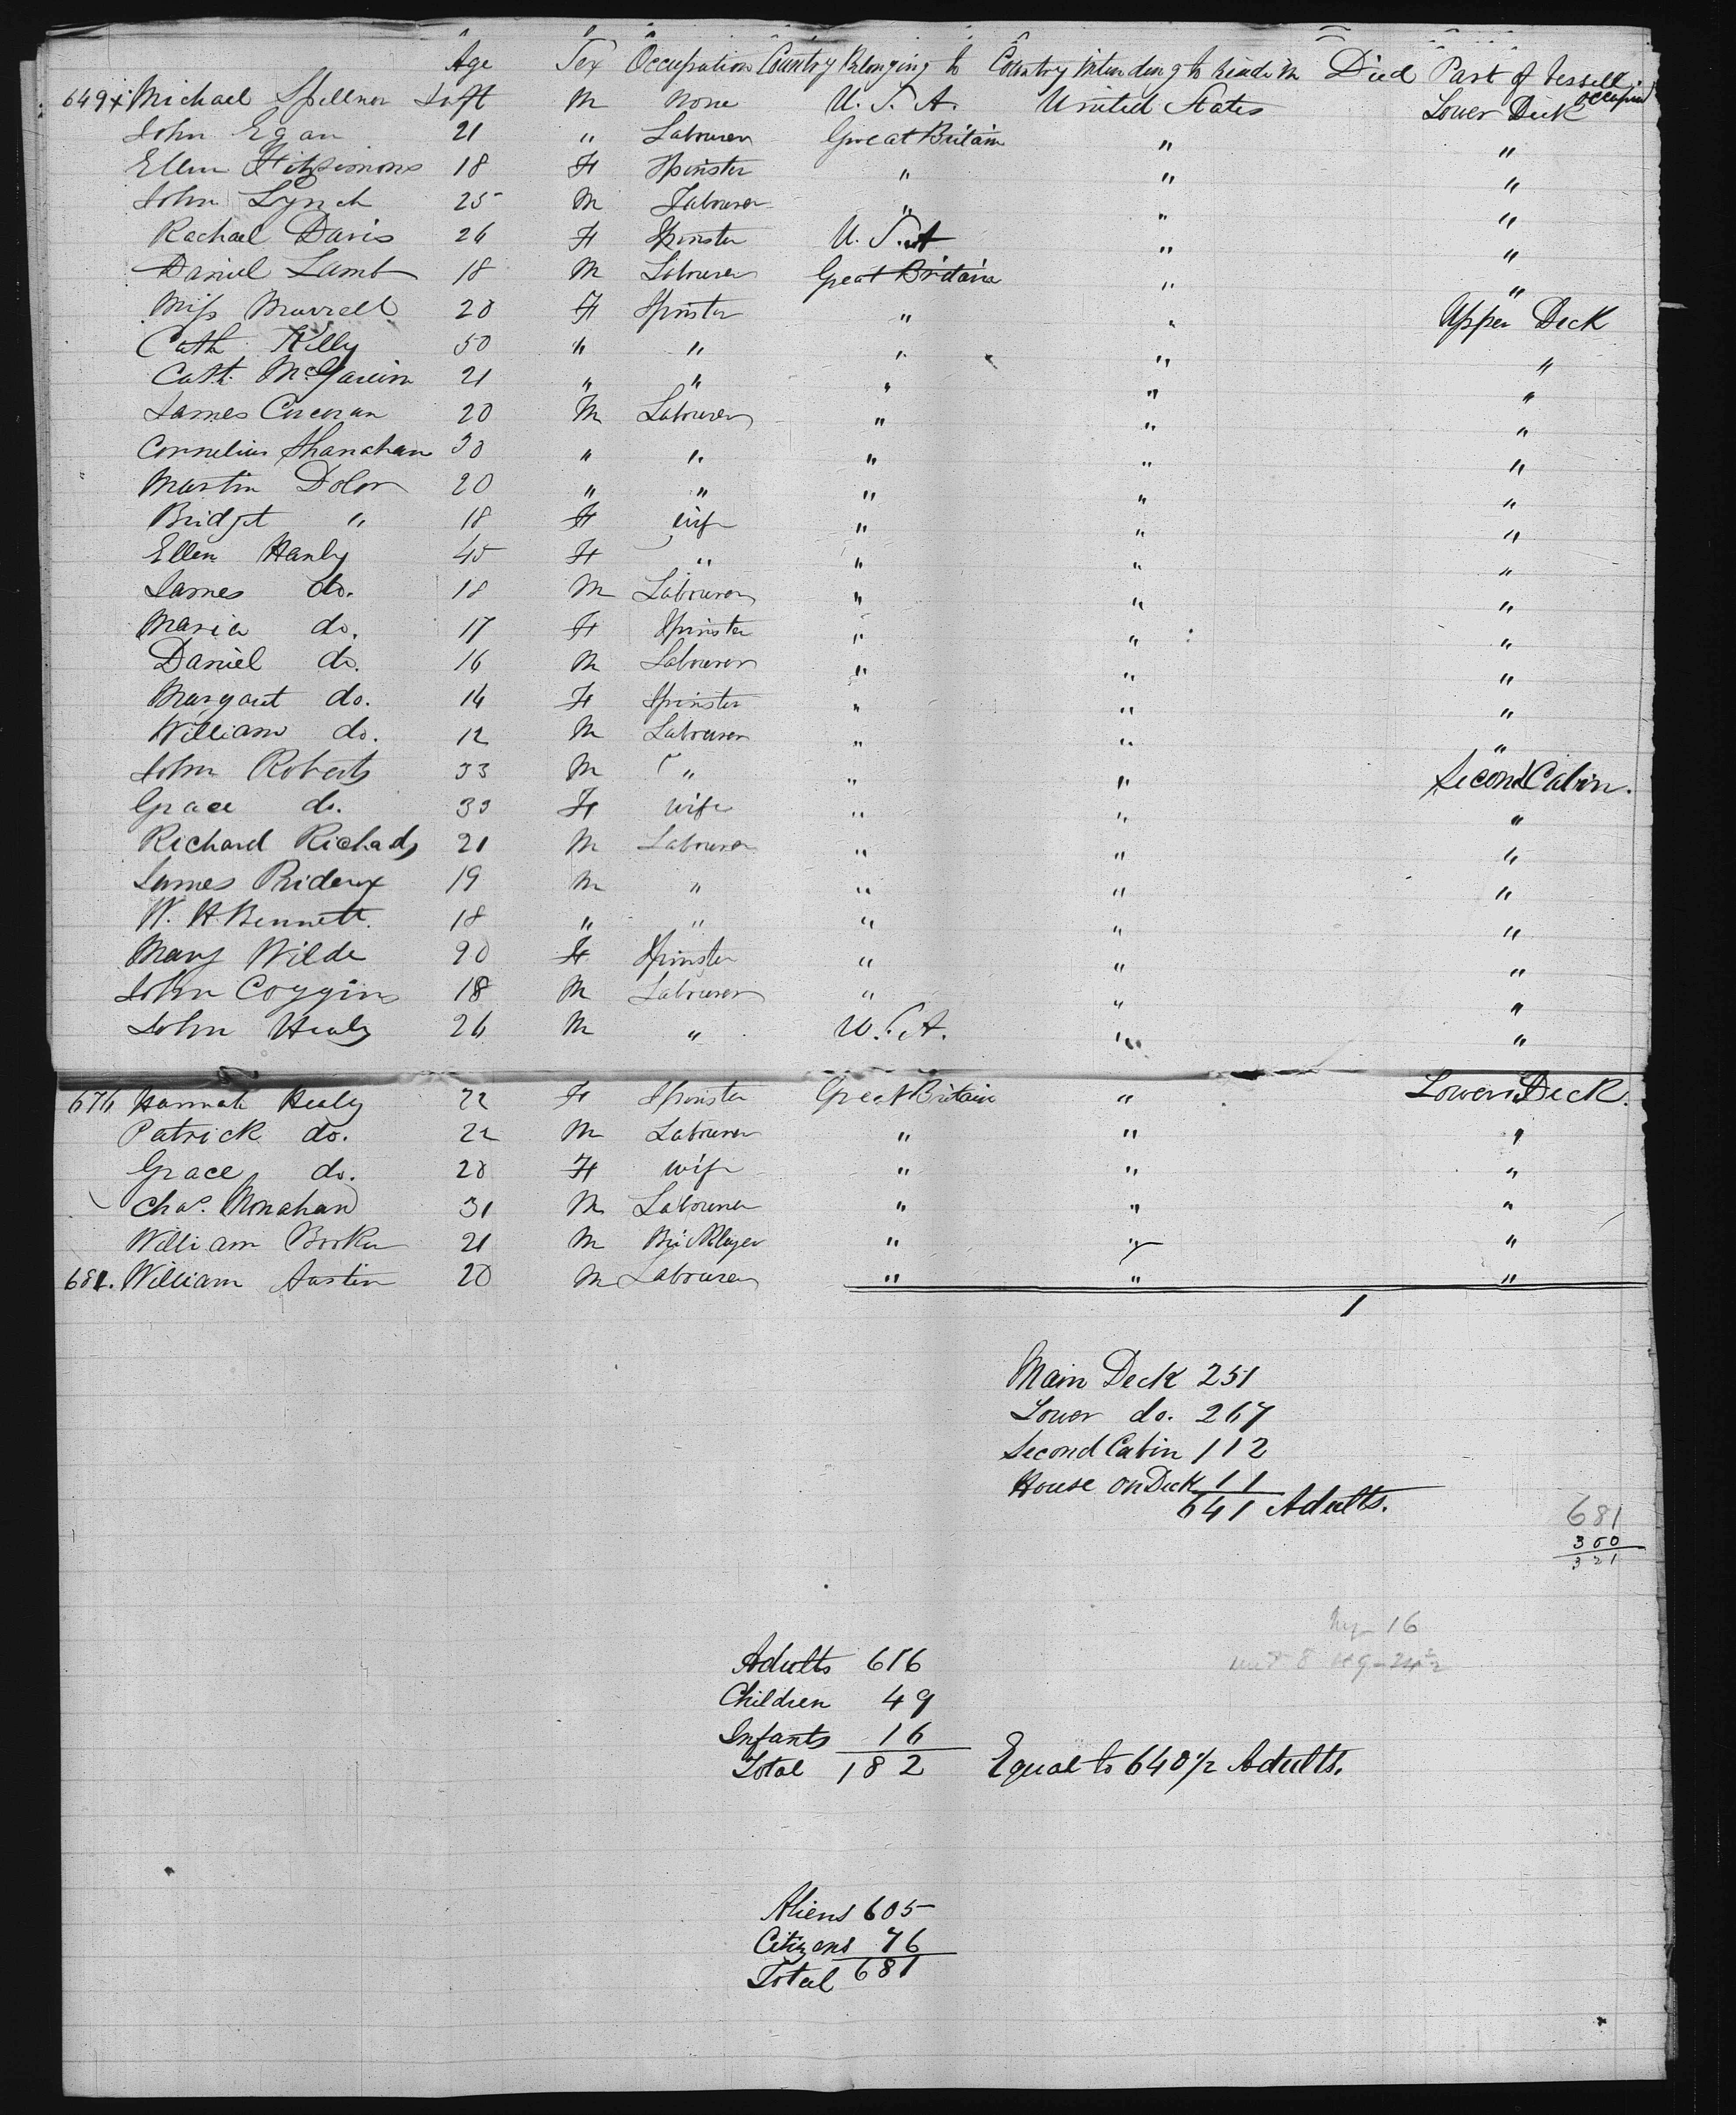 Age Sex Occupation Country Belonging to Country intending to reside in Died Part of Vessell occupied
649 x Michael Spellner Inft M None U. S. A. United States Lower Deck
John Egan 21 " Labourer Great Britain " "
Ellen Fitzsimons 18 F Spinster " " "
John Lynch 25 M Labourer " " "
Rachael Davis 26 F Spinster U. S. A " "
Daniel Lamb 18 M Labourer Great Britain " "
Miss Murrell 20 F Spinster " " Upper Deck
Cath Kelly 50 " " " " "
Cath. 21 " " " " "
James Corcoran 20 M Labourer " " "
Cornelius Shanahan 30 " " " " "
Martin Dolon 20 " " " " "
Bridget " 18 F wife " " "
Ellen Hanly 45 F " " " "
James do. 18 M Labourer " " "
Maria do. 17 F Spinster " " "
Daniel do. 16 M Labourer " " "
Margaret do. 14 F Spinster " " "
William do. 12 M Labourer " " "
John Roberts 33 M " " " Second Cabin.
Grace do. 33 F wife " " "
Richard Richads 21 M Labourer " " "
James Prideux 19 M " " " "
W. H. Bennett. 18 " " " " "
Mary Wilde 20 F Spinster " " "
John Coggins 18 M Labourer " " "
John Healy 26 M " U. S. A. " "
676 Hannah Healy 22 F Spinster Great Britain " Lower Deck.
Patrick do. 22 M Labourer " " "
Grace do. 20 F wife " " "
Chas. Monahan 31 M Labourer " " "
William 21 M Bricklayer " " "
681. William Austin 20 M Labourer " " "
1
Main Deck 251
Lower do. 267
Second Cabin 112
House on Deck 11
641 Adults.
681
360
321
16
Adults 616
Children 49
Infants 16
Total 182 Equal to 640 1/2 Adults.
Aliens 605
Citizens 76
Total 681